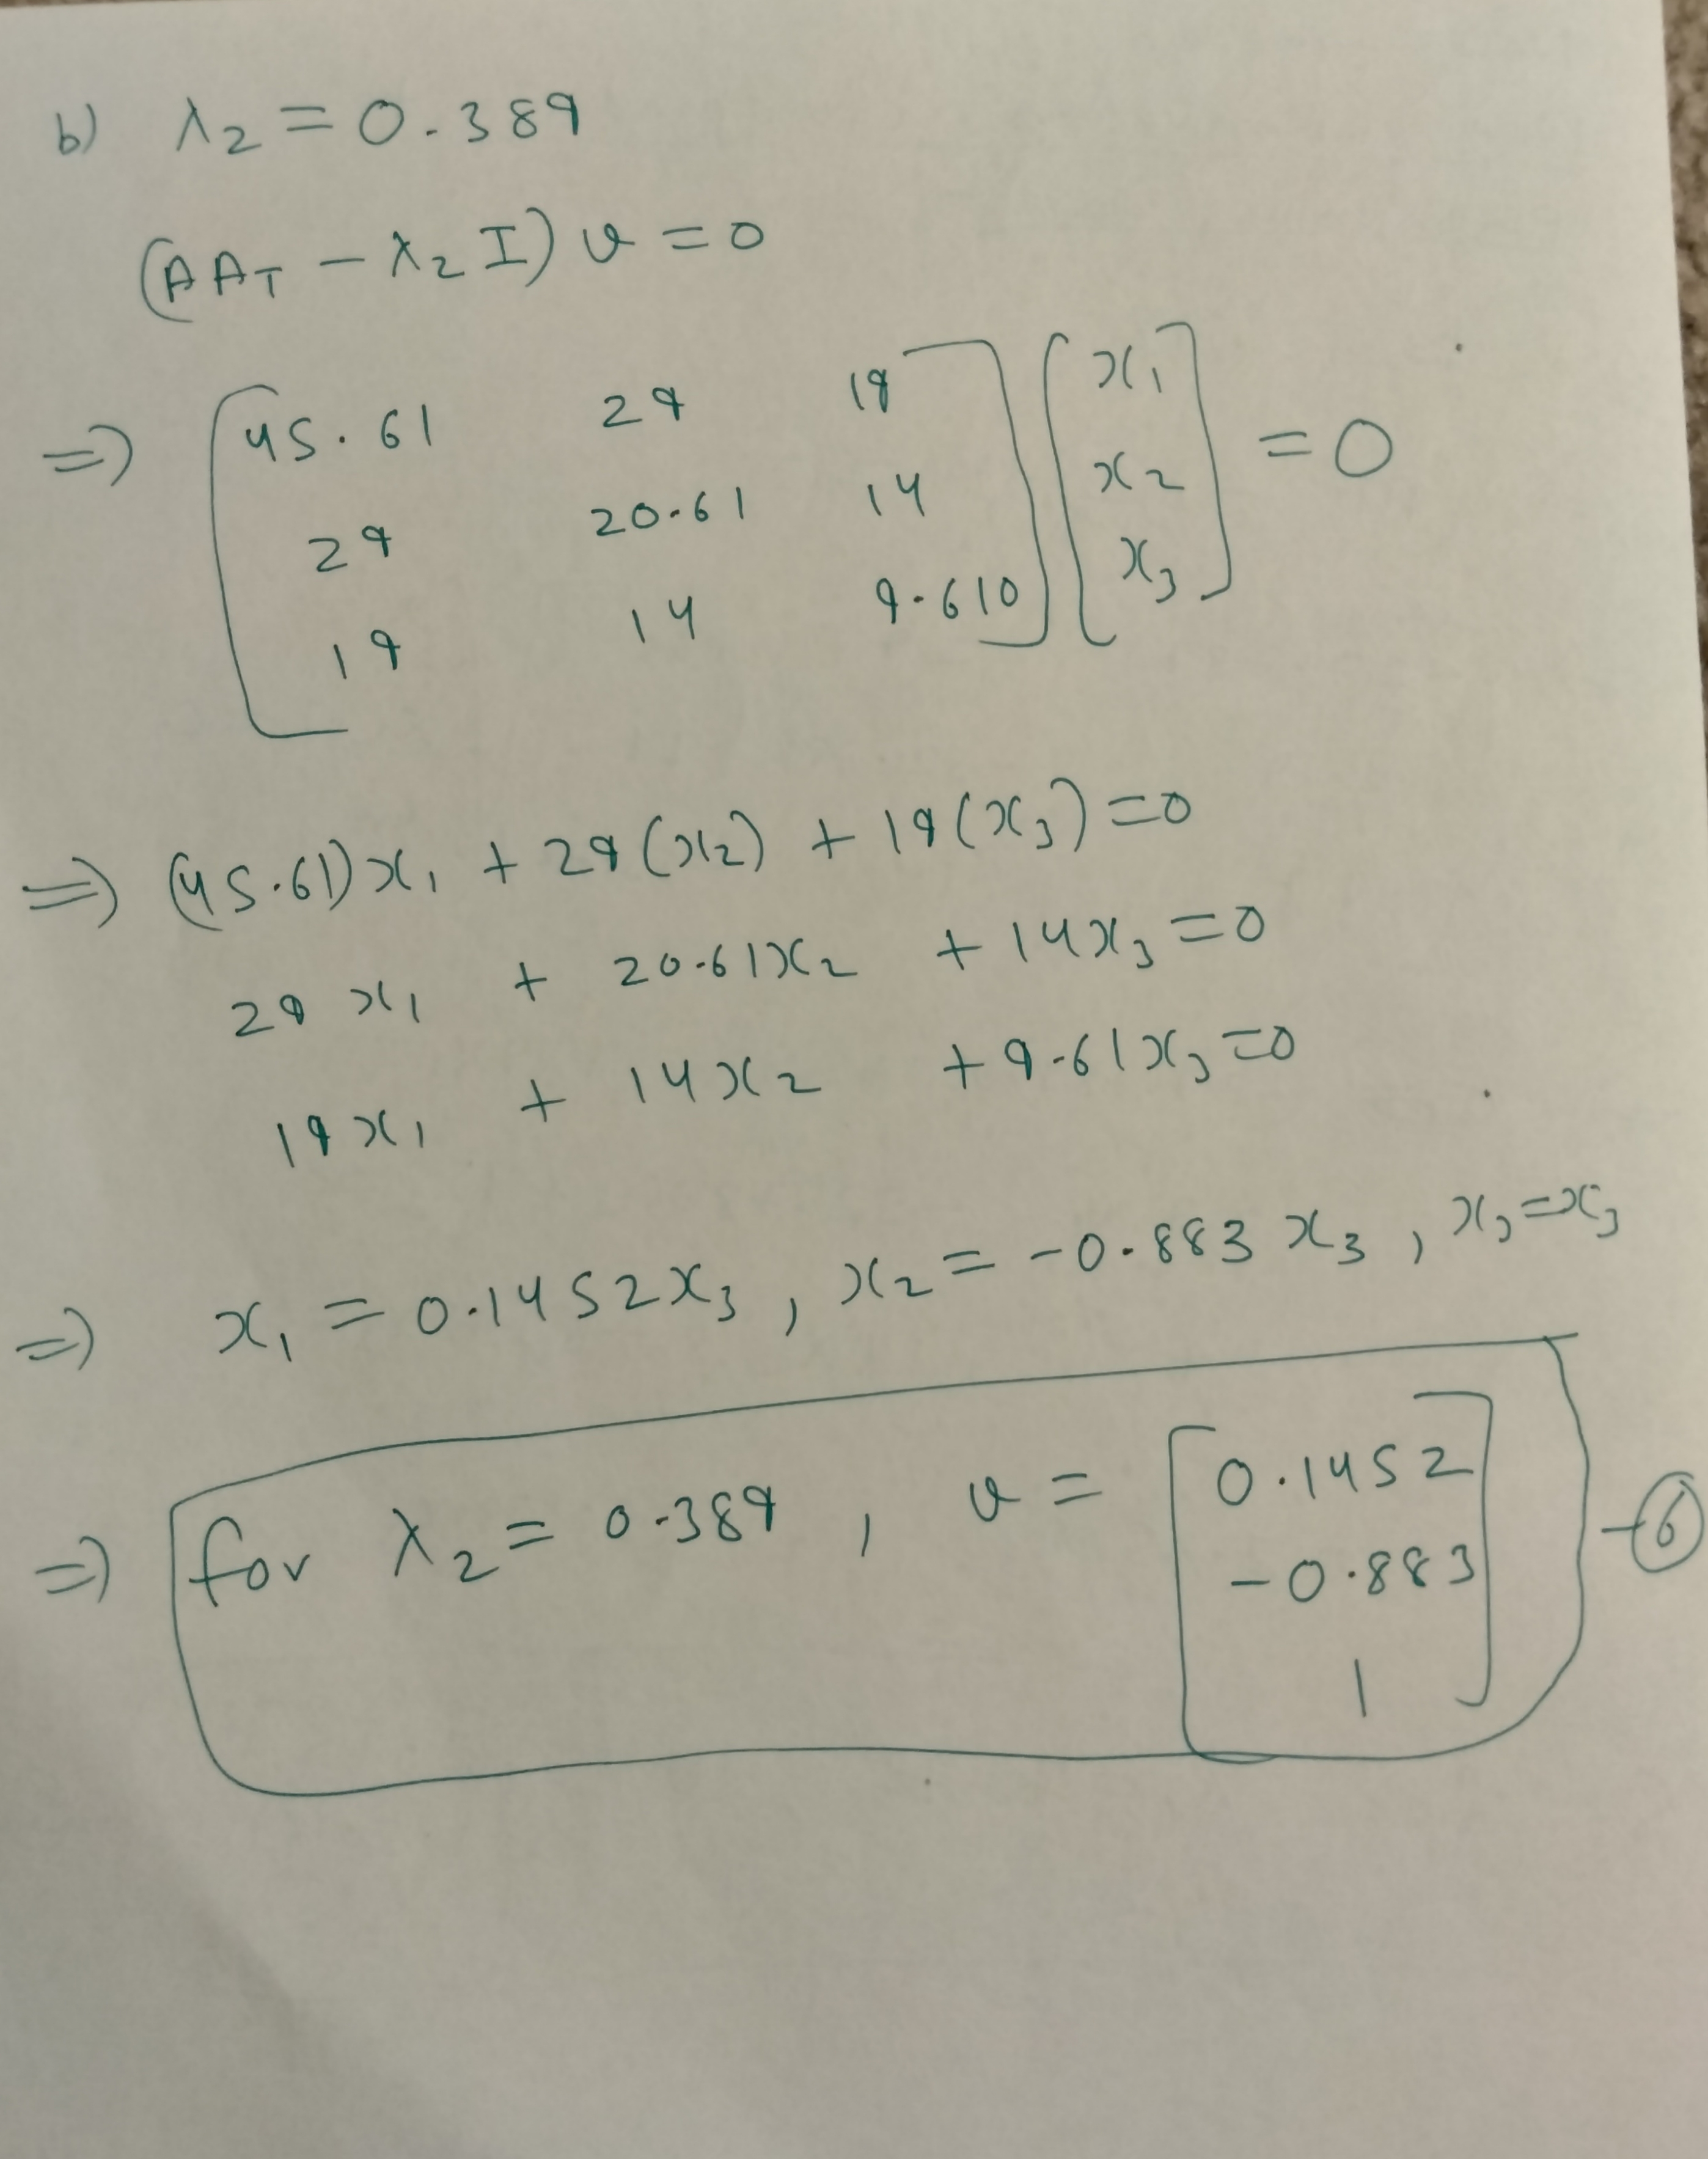 b) λ2 = 0.389
(AAT - λ2 I) v = 0
=> [45.61 29 19] [x1]
[29 20.61 14] [x2] = 0
[19 14 9.610] [x3]
=> (45.61)x1 + 29(x2) + 19(x3) = 0
29x1 + 20.61x2 + 14x3 = 0
19x1 + 14x2 + 9.61x3 = 0
=> x1 = 0.1452x3, x2 = -0.883 x3, x3 = x3
=> for λ2 = 0.389, v = [0.1452
-0.883
1] - 6